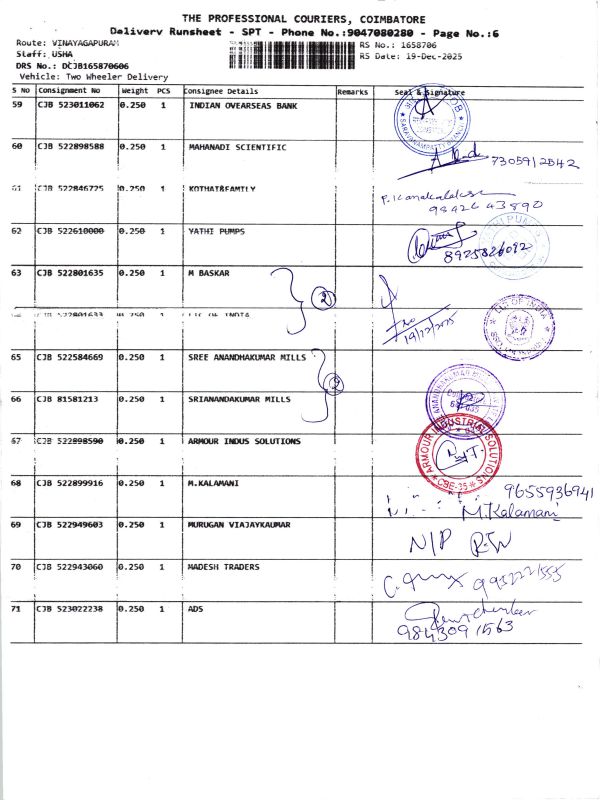 THE PROFESSIONAL COURIERS, COIMBATORE
Delivery Runsheet - SPT - Phone No.:9047080280 - Page No.:6
Route: VINAYAGAPURAM
RS No.: 1658706
Staff: USHA
RS Date: 19-Dec-2025
DRS No.: DCJB165870606
Vehicle: Two Wheeler Delivery
S No Consignment No Weight PCS Consignee Details Remarks Seal & Signature
59 CJB 523011062 0.250 1 INDIAN OVERSEAS BANK
60 CJB 522898588 0.250 1 MAHANADI SCIENTIFIC
7305912542
61 CJB 522846725 0.250 1 KOTHAI&FAMILY
9842643890
62 CJB 522610000 0.250 1 YATHI PUMPS
8925826092
63 CJB 522801635 0.250 1 M BASKAR
2
CJB 522801633 0.250 1 LIC OF INDIA
19/12/2025
LIC OF INDIA
65 CJB 522584669 0.250 1 SREE ANANDHAKUMAR MILLS
2
66 CJB 81581213 0.250 1 SRIANANDAKUMAR MILLS
67 CJB 522898590 0.250 1 ARMOUR INDUS SOLUTIONS
ARMOUR INDUSTRIAL SOLUTIONS
CBE-35
68 CJB 522899916 0.250 1 M.KALAMANI
9655936941
M.Kalamani
69 CJB 522949603 0.250 1 MURUGAN VIAJAYKAUMAR
N/P
70 CJB 522943060 0.250 1 MADESH TRADERS
71 CJB 523022238 0.250 1 ADS
9843091563